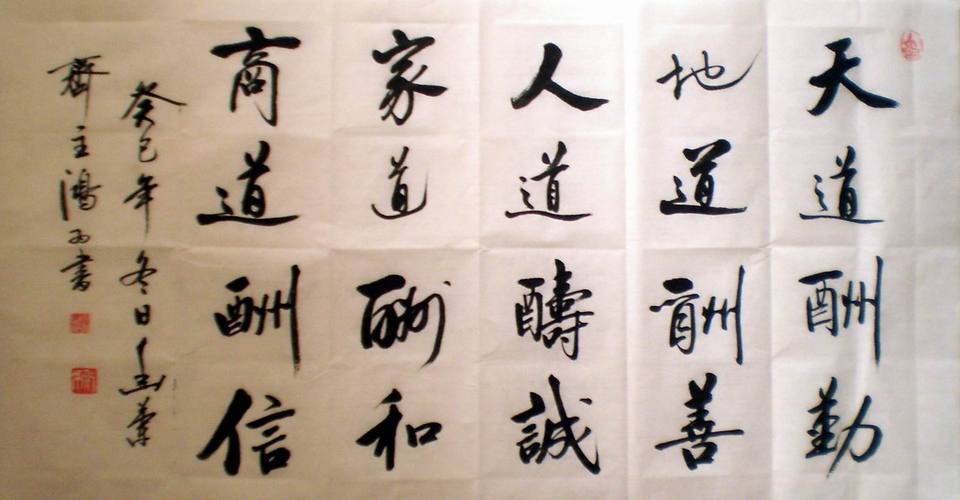 天道酬勤
地道酬善
人道醻誠
家道酬和
商道酬信
癸巳年冬日
齋主鴻
書